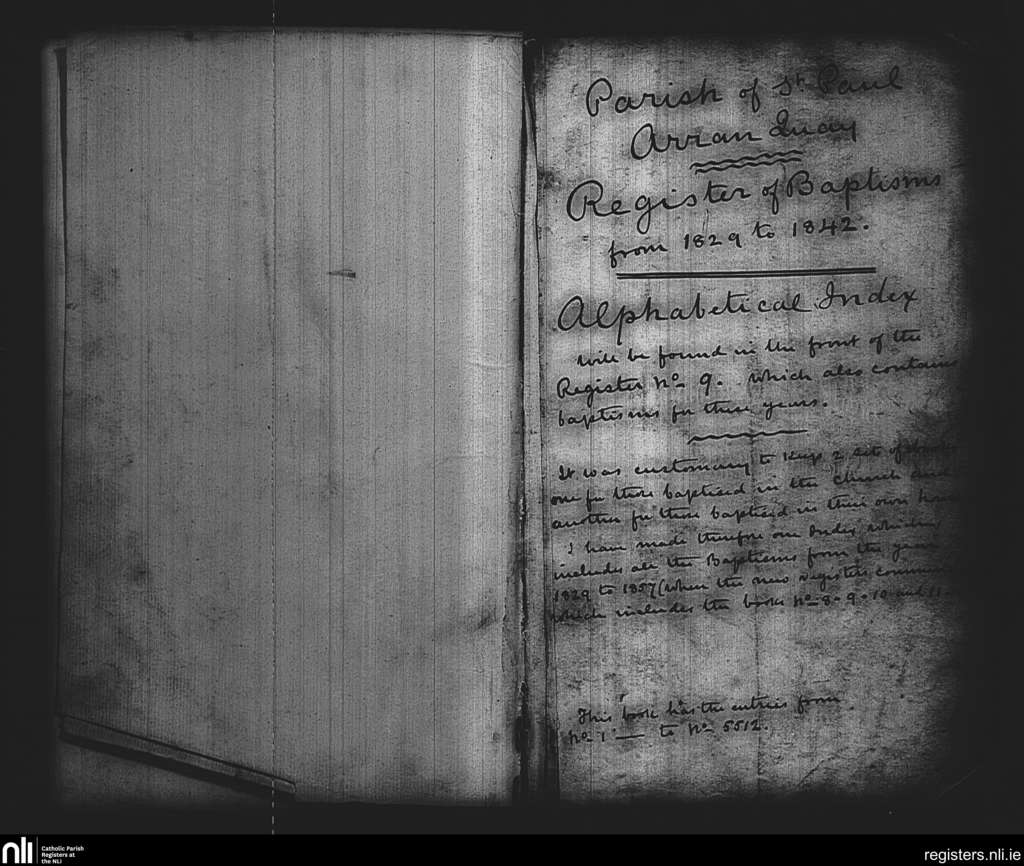 Parish of St. Paul
Arran Quay
Register of Baptisms
from 1829 to 1842.
Alphabetical Index
will be found in the front of the
Register No. 9. which also contains
baptisms for these years.
It was customary to keep 2 sets of books
one for those baptised in the church and
another for those baptised in their own homes
I have made therefore one Index which
includes all the Baptisms from the year
1829 to 1857 (when the new registers commence
which includes the books No. 8. 9. 10 and 11.
This book has the entries from
No. 1 — to No. 5512.
nli
Catholic Parish
Registers at
the NLI
registers.nli.ie